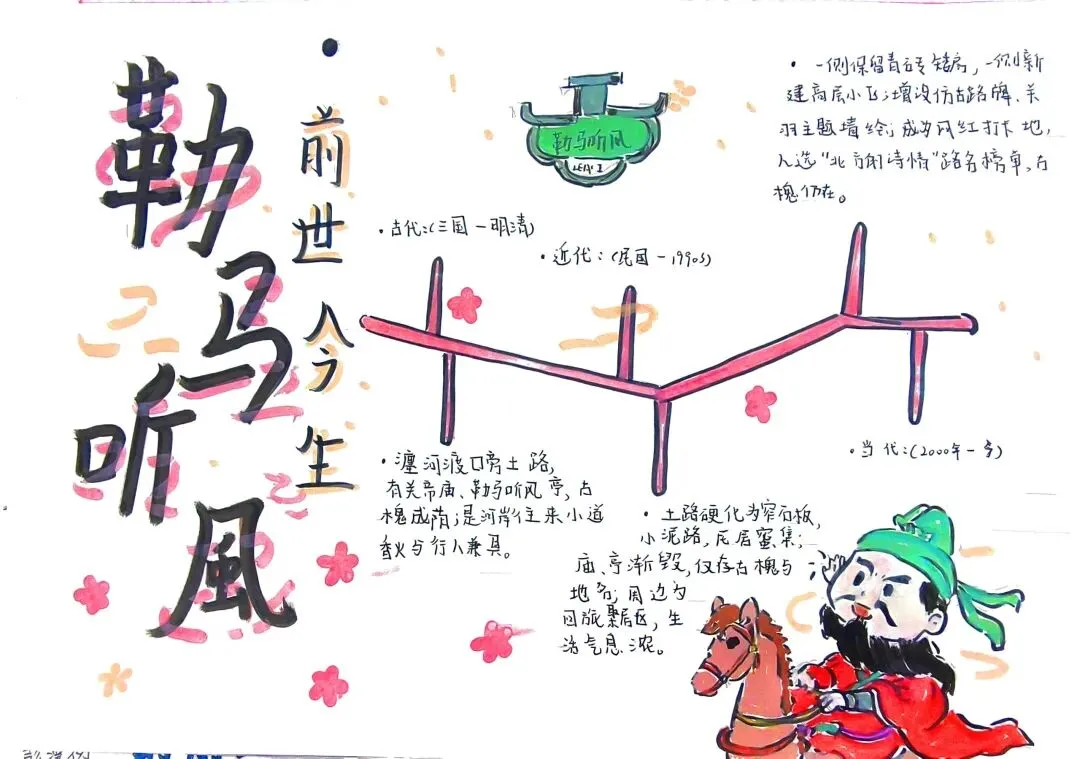 勒马听風
·前世今生
勒马听风
·古代:(三国-明清)
·瀍河渡口旁土路,
有关帝庙、勒马听风亭,古
槐成荫;是河岸往来小道
香火与行人兼具。
·近代:(民国-1990s)
·土路硬化为窄石板,
小泥路,民居密集;
庙、亭渐毁,仅存古槐与
地名;周边为
回族聚居区,生
活气息浓。
·当代:(2000年-今)
·一侧保留青砖矮房,一侧新
建高层小区;增设仿古路牌、关
羽主题墙绘;成为网红打卡地,
入选“北方的诗情”路名榜单,古
槐仍在。